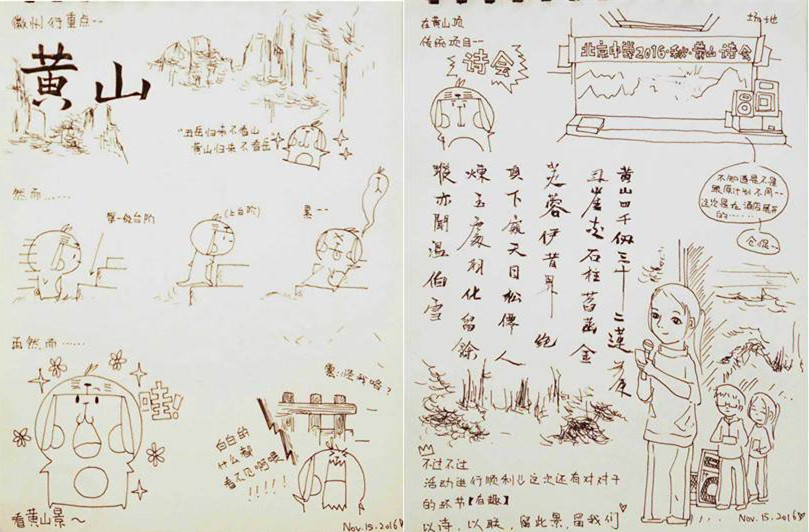 徽州行重点--
黄山
"五岳归来不看山
黄山归来不看岳
然而……
第一级台阶
(上台阶)
累--
再然而……
哇!
雾:怪我咯?
白白的
什么都
看不见啊喂
!!!!!
看黄山景~
Nov.15.2016
在黄山顶
传统项目--
诗会
场地
北京中学2016·秋·黄山·诗会
不知道是不是
跟原计划不同--
这次是在酒店展开
的……
仓促~
黄山四千仞三十二蓮峰
丹崖夾石柱菡萏金
芙蓉伊昔昇絶
頂下窺天目松僊人
煉玉處羽化留餘
蹤亦聞溫伯雪
不过不过
活动进行顺利!!这次还有对对子
的环节【有趣】
以诗,以联,留此景,留我们
Nov.15.2016